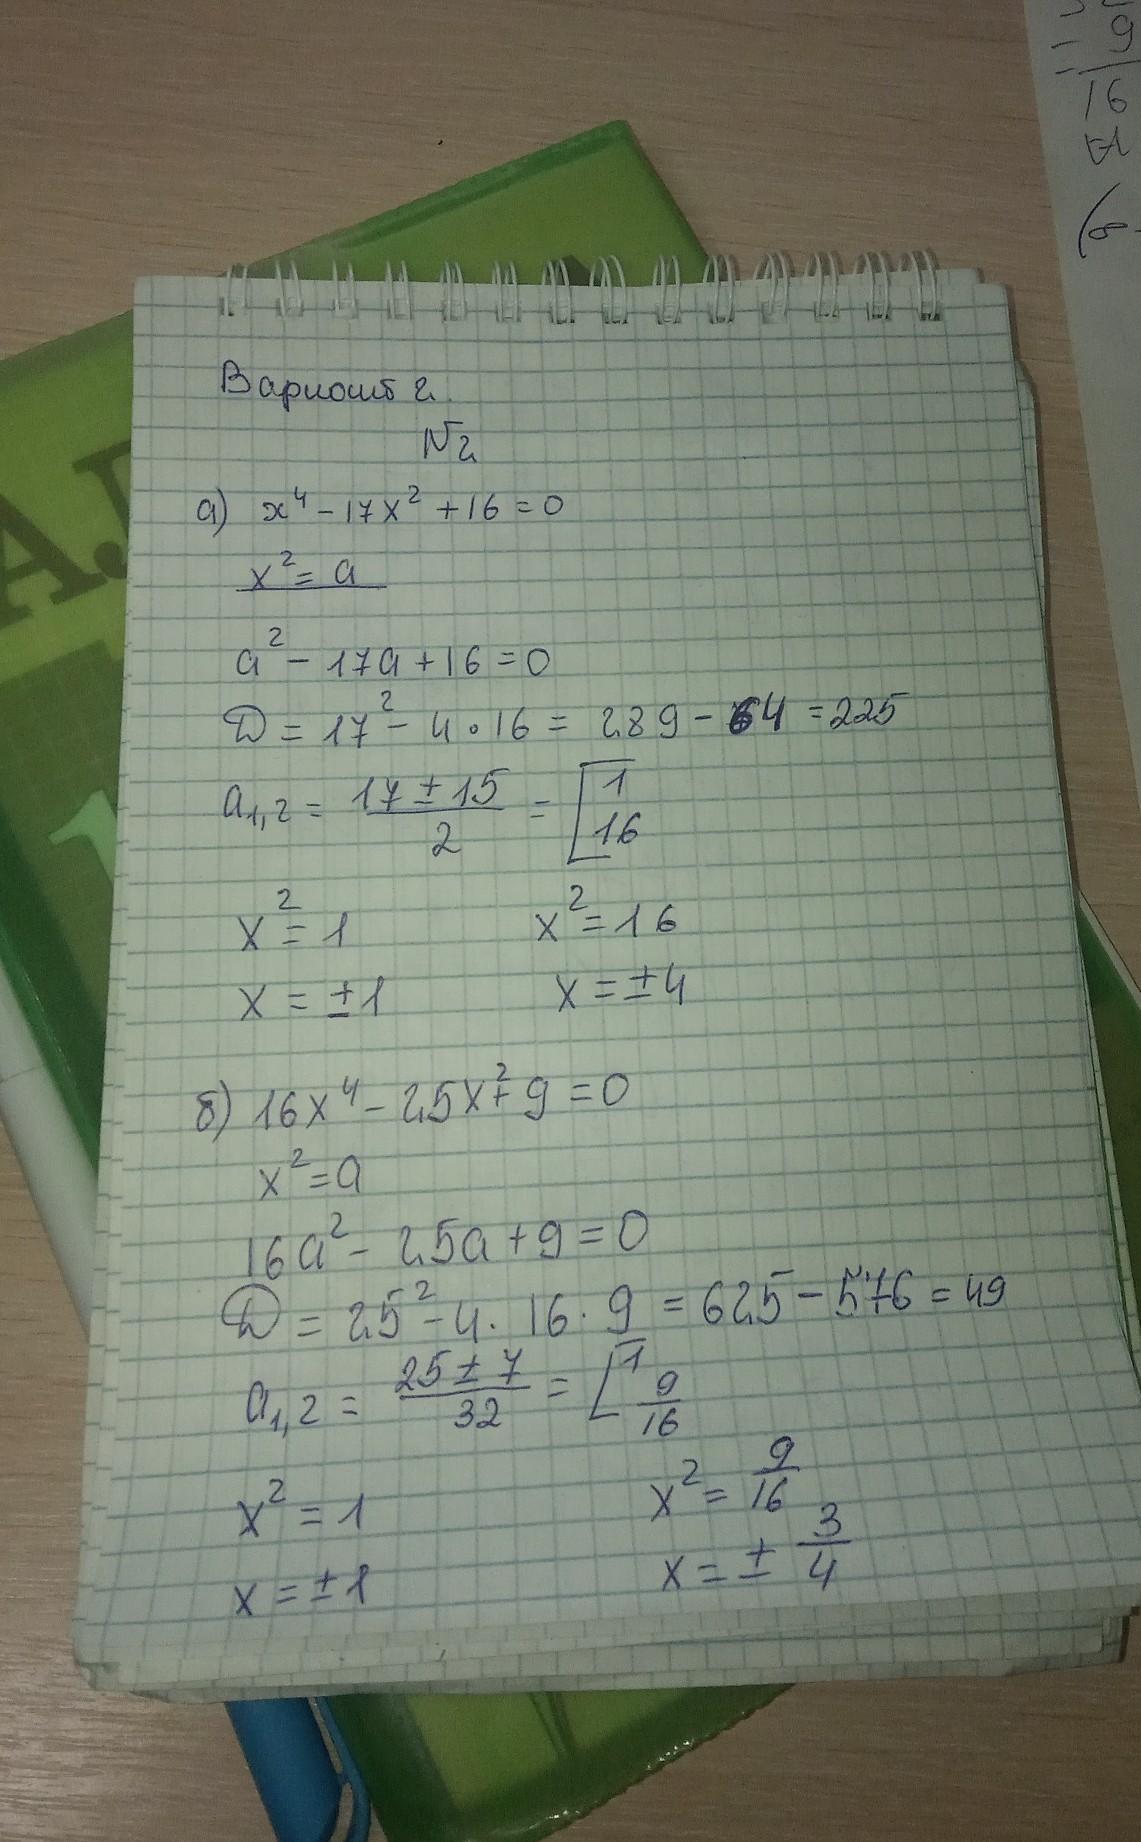 Вариант 2.
№2
а) x⁴ - 17x² + 16 = 0
x² = a
a² - 17a + 16 = 0
D = 17² - 4 · 16 = 289 - 64 = 225
a₁,₂ = (17 ± 15)/2 = [1 16
x² = 1 x² = 16
x = ±1 x = ±4
б) 16x⁴ - 25x² + 9 = 0
x² = a
16a² - 25a + 9 = 0
D = 25² - 4 · 16 · 9 = 625 - 576 = 49
a₁,₂ = (25 ± 7)/32 = [1 9/16
x² = 1 x² = 9/16
x = ±1 x = ± 3/4